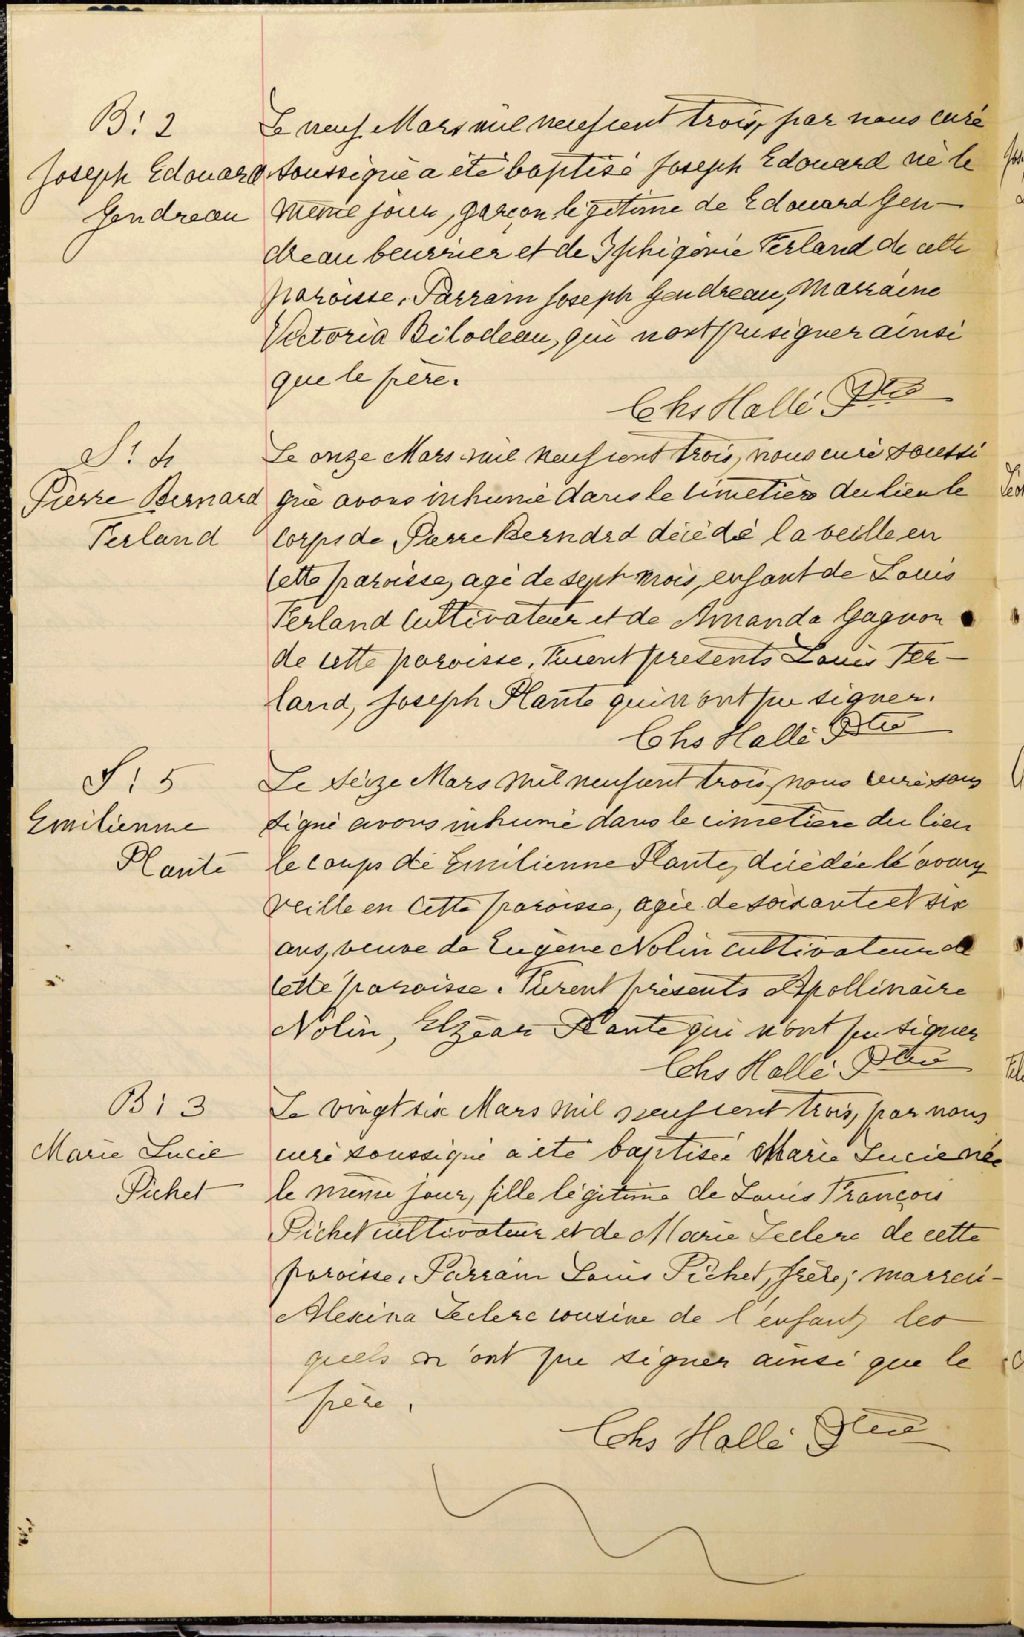 B: 2
Joseph Edouard
Gendreau
Le neuf Mars mil neuf cent trois, par nous curé
soussigné a été baptisé Joseph Edouard né le
même jour, garçon légitime de Edouard Gen-
dreau beurrier et de Iphigénie Ferland de cette
paroisse. Parrain Joseph Gendreau, Marraine
Victoria Bilodeau, qui n'ont pu signer ainsi
que le père.
Chs Hallé Ptre
S: 4
Pierre Bernard
Ferland
Le onze Mars mil neuf cent trois, nous curé soussi
gné avons inhumé dans le cimetière du lieu le
corps de Pierre Bernard décédé la veille en
cette paroisse, agé de sept mois, enfant de Louis
Ferland cultivateur et de Amanda Gagnon
de cette paroisse. Furent présents Louis Fer-
land, Joseph Plante qui n'ont pu signer.
Chs Hallé Ptre
S: 5
Emilienne
Plante
Le seize Mars mil neuf cent trois, nous curé sous
signé avons inhumé dans le cimetière du lieu
le corps de Emilienne Plante, décédée l'avant
veille en cette paroisse, agée de soixante et six
ans, veuve de Eugène Nolin cultivateur de
cette paroisse. Furent présents Apollinaire
Nolin, Elzéar Plante qui n'ont pu signer
Chs Hallé Ptre
B: 3
Marie Lucie
Pichet
Le vingt six Mars mil neuf cent trois, par nous
curé soussigné a été baptisée Marie Lucie née
le même jour, fille légitime de Louis François
Pichet cultivateur et de Marie Leclerc de cette
paroisse. Parrain Louis Pichet, frère; marrei-
Alexina Leclerc cousine de l'enfant, les
quels n'ont pu signer ainsi que le
père.
Chs Hallé Ptre